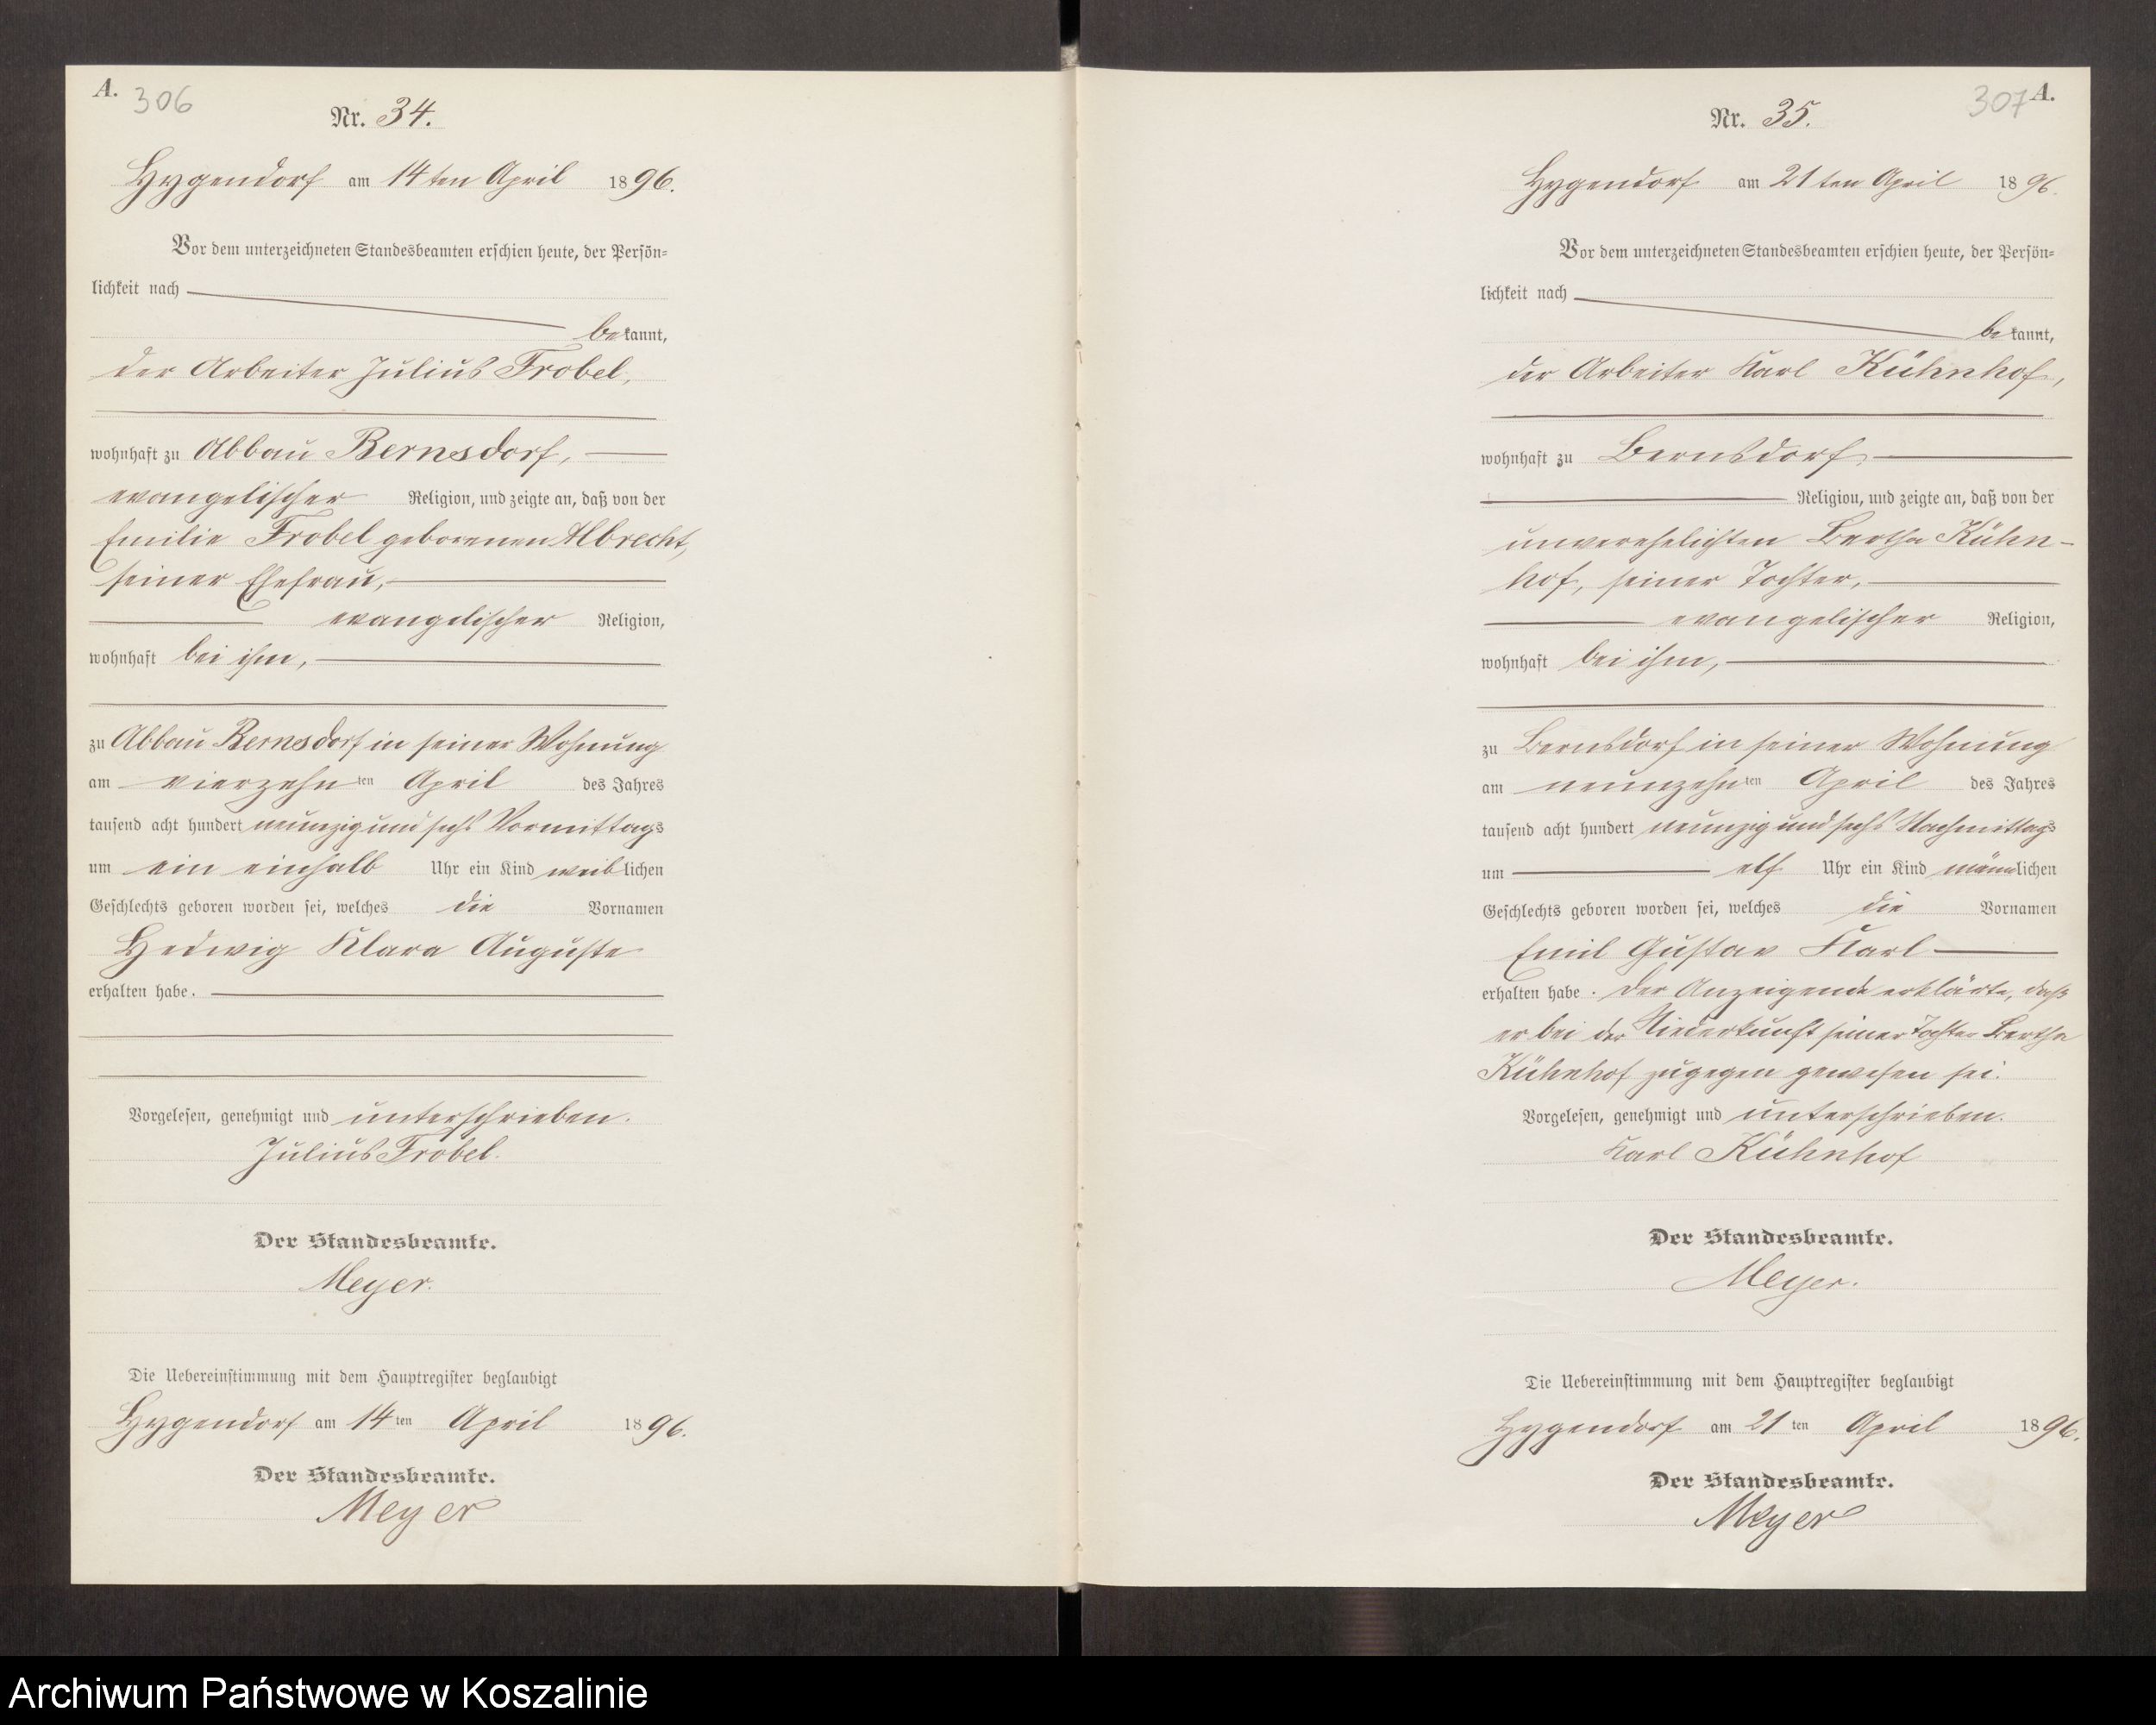 A.
306
Nr. 34.
Hygendorf am 14ten April 1896.
Vor dem unterzeichneten Standesbeamten erschien heute, der Persön=
lichkeit nach
bekannt,
der Arbeiter Julius Frobel,
wohnhaft zu Abbau Bernsdorf,
evangelischer Religion, und zeigte an, daß von der
Emilie Frobel geborenen Albrecht,
seiner Ehefrau,
evangelischer Religion,
wohnhaft bei ihm,
zu Abbau Bernsdorf in seiner Wohnung
am vierzehnten April des Jahres
tausend acht hundert neunzig und sechs Vormittags
um ein einhalb Uhr ein Kind weiblichen
Geschlechts geboren worden sei, welches die Vornamen
Hedwig Klara Auguste
erhalten habe.
Vorgelesen, genehmigt und unterschrieben.
Julius Frobel.
Der Standesbeamte.
Meyer.
Die Uebereinstimmung mit dem Hauptregister beglaubigt
Hygendorf am 14ten April 1896.
Der Standesbeamte.
Meyer
307
A.
Nr. 35.
Hygendorf am 21ten April 1896.
Vor dem unterzeichneten Standesbeamten erschien heute, der Persön=
lichkeit nach
bekannt,
der Arbeiter Karl Kühnhof,
wohnhaft zu Bernsdorf
Religion, und zeigte an, daß von der
unverehelichten Bertha Kühn-
hof, seiner Tochter,
evangelischer Religion,
wohnhaft bei ihm,
zu Bernsdorf in seiner Wohnung
am neunzehnten April des Jahres
tausend acht hundert neunzig und sechs Nachmittags
um elf Uhr ein Kind männlichen
Geschlechts geboren worden sei, welches die Vornamen
Emil Gustav Karl
erhalten habe. Der Anzeigende erklärte, daß
er bei der Niederkunft seiner Tochter Bertha
Kühnhof zugegen gewesen sei.
Vorgelesen, genehmigt und unterschrieben.
Karl Kühnhof
Der Standesbeamte.
Meyer.
Die Uebereinstimmung mit dem Hauptregister beglaubigt
Hygendorf am 21ten April 1896.
Der Standesbeamte.
Meyer
Archiwum Państwowe w Koszalinie